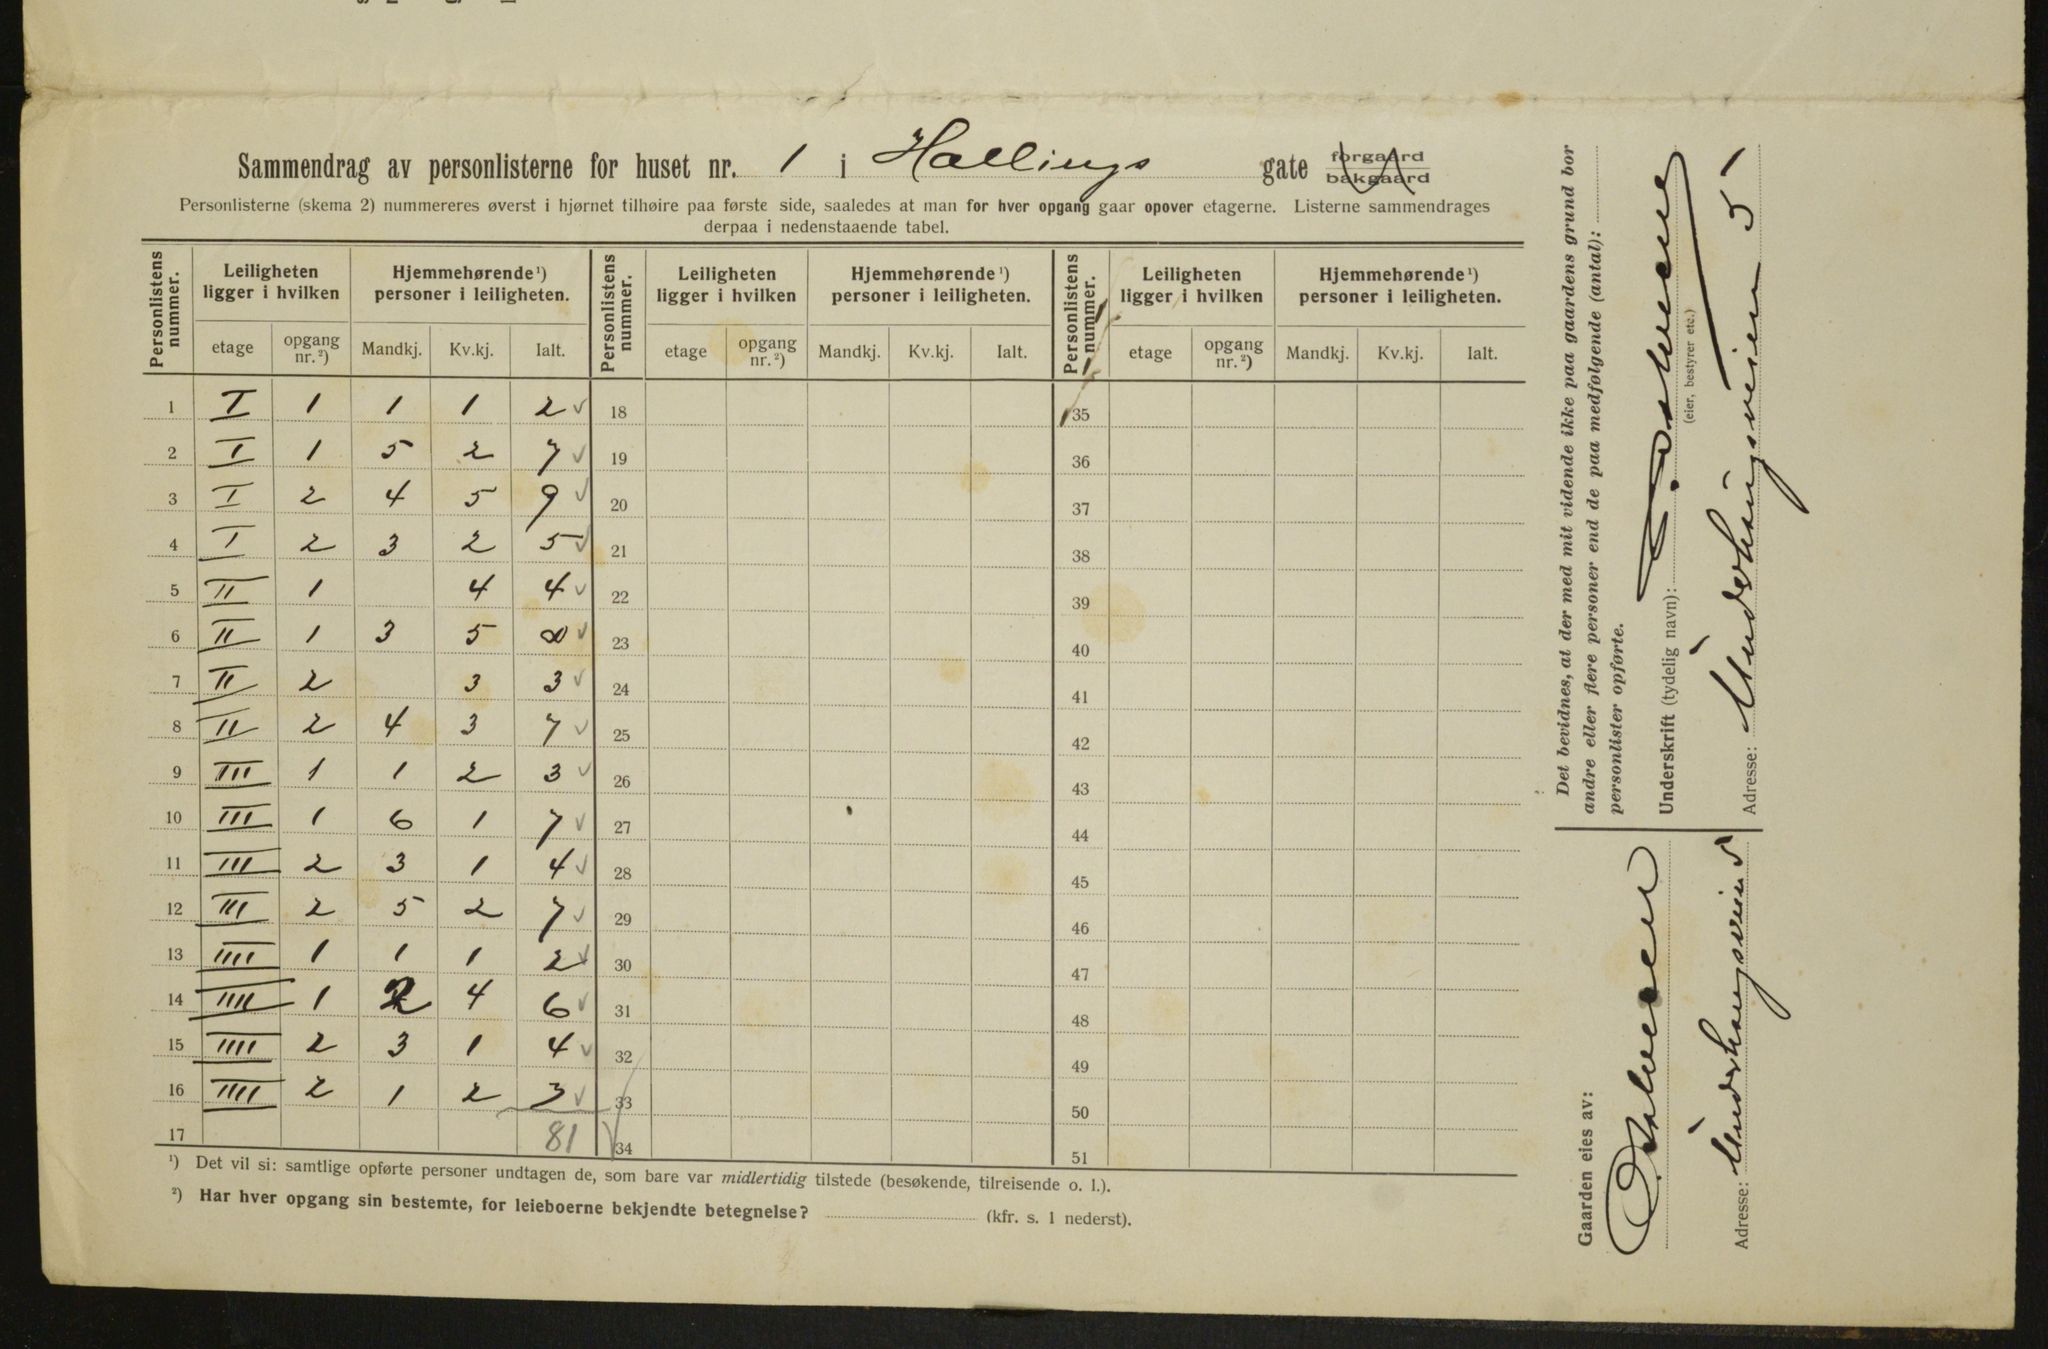 Sammendrag av personlisterne for huset nr. 1 i Hallings gate forgaard bakgaard
Personlisterne (skema 2) nummereres øverst i hjørnet tilhøire paa første side, saaledes at man for hver opgang gaar opover etagerne. Listerne sammendrages
derpaa i nedenstaaende tabel.
Personlistens nummer. Leiligheten ligger i hvilken Hjemmehørende ¹) personer i leiligheten. Personlistens nummer. Leiligheten ligger i hvilken Hjemmehørende ¹) personer i leiligheten. Personlistens nummer. Leiligheten ligger i hvilken Hjemmehørende ¹) personer i leiligheten.
etage opgang nr. ²) Mandkj. Kv.kj. Ialt. etage opgang nr. ²) Mandkj. Kv.kj. Ialt. etage opgang nr. ²) Mandkj. Kv.kj. Ialt.
1 I 1 1 1 2 ✓ 18 35
2 I 1 5 2 7 ✓ 19 36
3 I 2 4 5 9 ✓ 20 37
4 I 2 3 2 5 ✓ 21 38
5 II 1 4 4 ✓ 22 39
6 II 1 3 5 8 ✓ 23 40
7 II 2 3 3 ✓ 24 41
8 II 2 4 3 7 ✓ 25 42
9 III 1 1 2 3 ✓ 26 43
10 III 1 6 1 7 ✓ 27 44
11 III 2 3 1 4 ✓ 28 45
12 III 2 5 2 7 ✓ 29 46
13 IIII 1 1 1 2 ✓ 30 47
14 IIII 1 2 4 6 ✓ 31 48
15 IIII 2 3 1 4 ✓ 32 49
16 IIII 2 1 2 3 ✓ 33 50
17 81 ✓ 34 51
¹) Det vil si: samtlige opførte personer undtagen de, som bare var midlertidig tilstede (besøkende, tilreisende o. l.).
²) Har hver opgang sin bestemte, for leieboerne bekjendte betegnelse? (kfr. s. 1 nederst).
Det bevidnes, at der med mit vidende ikke paa gaardens grund bor
andre eller flere personer end de paa medfølgende (antal):
personlister opførte.
Underskrift (tydelig navn):
(eier, bestyrer etc.)
Adresse: Underhaugsveien 5
Gaarden eies av:
Adresse: Underhaugsveien 5